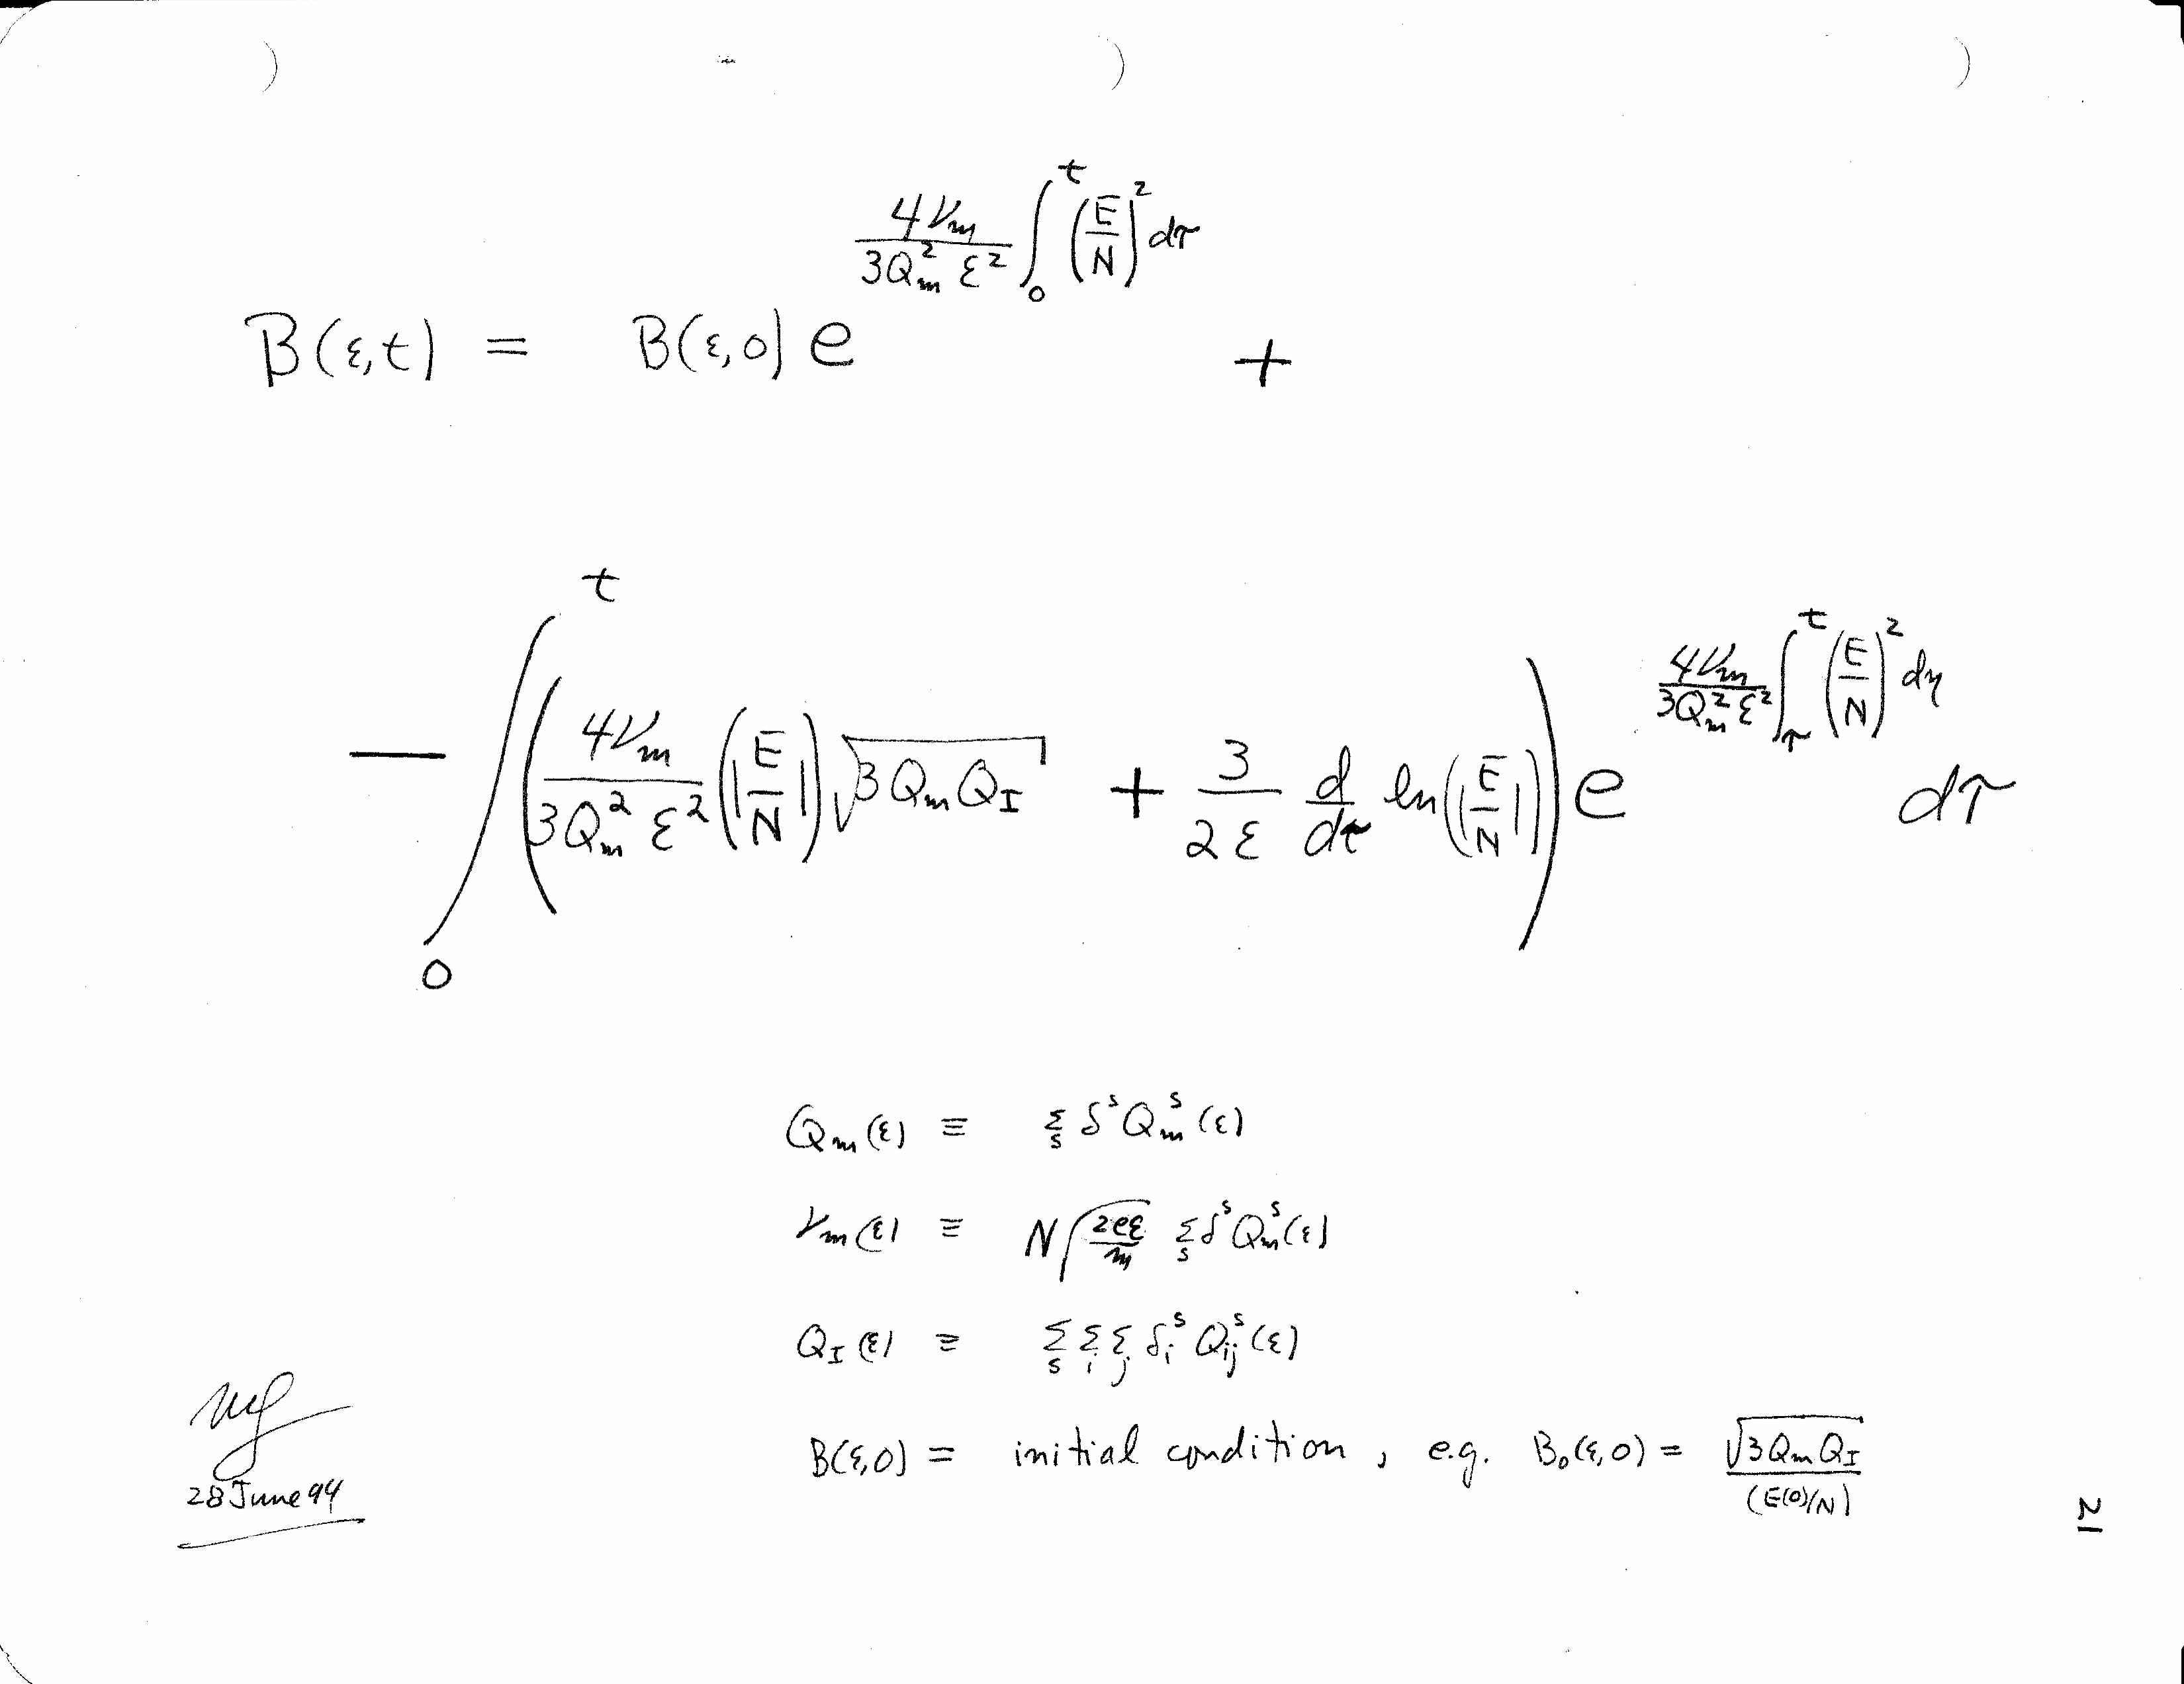 B(ε,t) = B(ε,0) e^{\frac{4ν_m}{3Q_m^2 ε^2} \int_0^t (\frac{E}{N})^2 dτ} +
− \int_0^t ( \frac{4ν_m}{3Q_m^2 ε^2} (|\frac{E}{N}|) \sqrt{3Q_m Q_I} + \frac{3}{2ε} \frac{d}{dτ} ln(|\frac{E}{N}|) ) e^{\frac{4ν_m}{3Q_m^2 ε^2} \int_τ^t (\frac{E}{N})^2 dη} dτ
Q_m(ε) ≡ Σ_s δ^s Q_m^s(ε)
ν_m(ε) ≡ N \sqrt{\frac{2eε}{m}} Σ_s δ^s Q_m^s(ε)
Q_I(ε) ≡ Σ_s Σ_i Σ_j δ_i^s Q_{ij}^s(ε)
B(ε,0) = initial condition, e.g. B_0(ε,0) = \frac{\sqrt{3Q_m Q_I}}{(E(0)/N)}
28 June 94